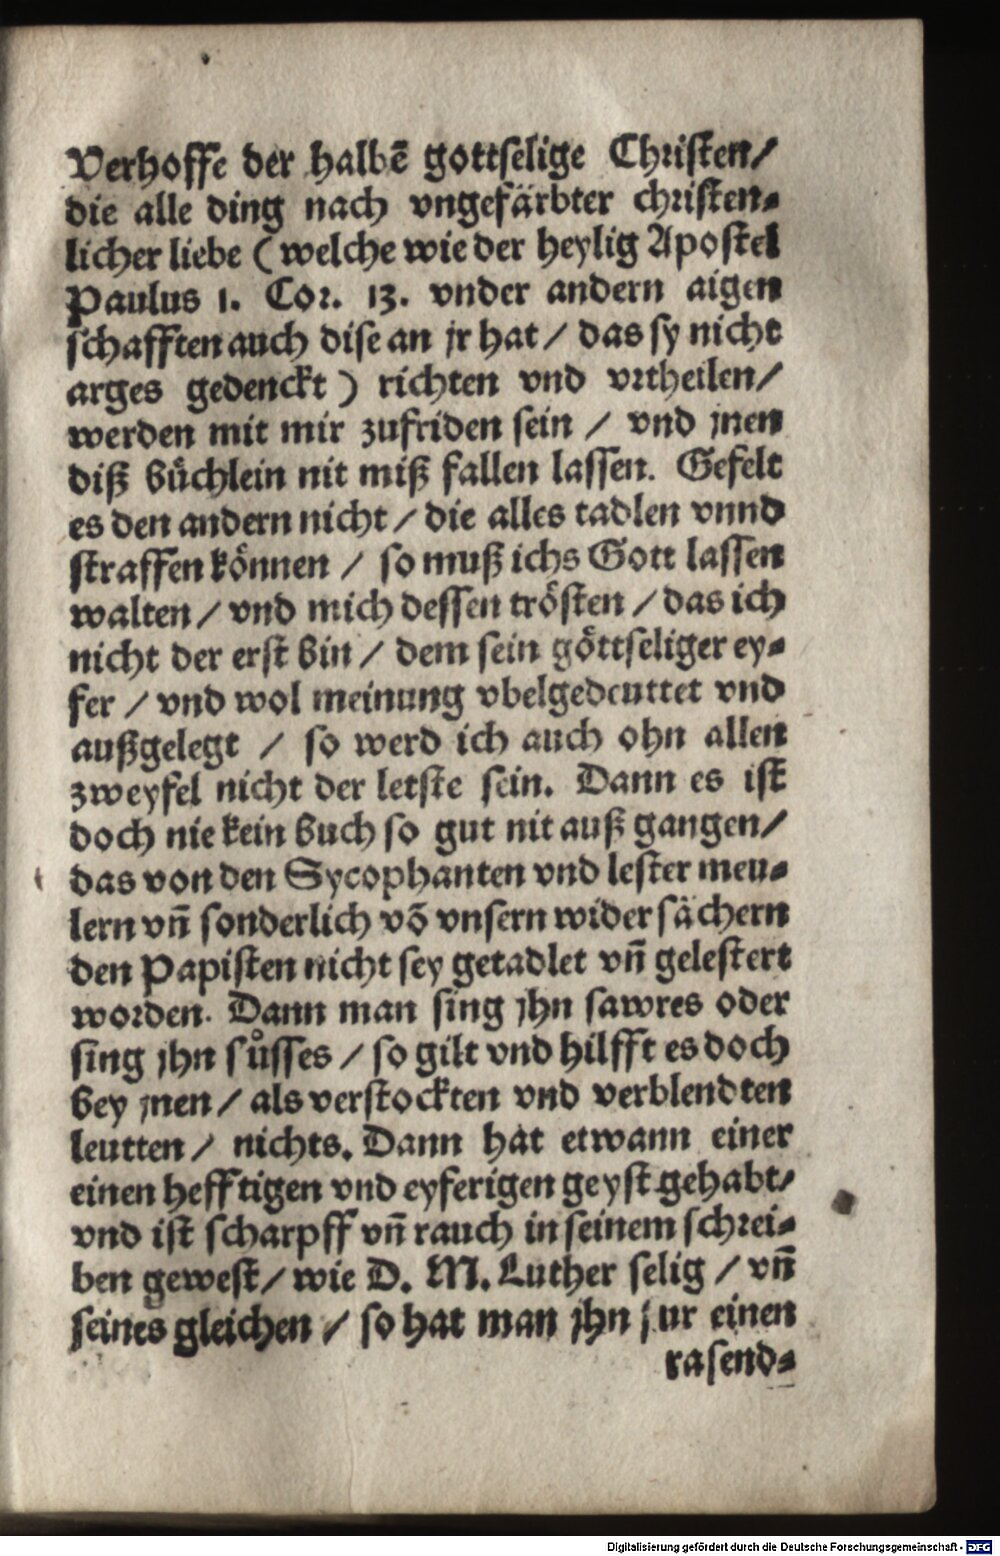 Verhoffe der halbē gottselige Christen/
die alle ding nach vngefärbter christen-
licher liebe (welche wie der heylig Apostel
Paulus 1. Cor. 13. vnder andern aigen
schafften auch dise an jr hat / das sy nicht
arges gedenckt) richten vnd vrtheilen/
werden mit mir zufriden sein / vnd jnen
diß bůchlein nit miß fallen lassen. Gefelt
es den andern nicht / die alles tadlen vnnd
straffen können / so muß ichs Gott lassen
walten / vnd mich dessen trösten / das ich
nicht der erst bin / dem sein göttseliger ey-
fer / vnd wol meinung vbelgedeuttet vnd
außgelegt / so werd ich auch ohn allen
zweyfel nicht der letste sein. Dann es ist
doch nie kein buch so gut nit auß gangen/
das von den Sycophanten vnd lester meu-
lern vn̄ sonderlich vō vnsern wider sächern
den Papisten nicht sey getadlet vn̄ gelestert
worden. Dann man sing jhn sawres oder
sing jhn sůsses / so gilt vnd hilfft es doch
bey jnen / als verstockten vnd verblendten
leutten / nichts. Dann hat etwann einer
einen hefftigen vnd eyferigen geyst gehabt/
vnd ist scharpff vn̄ rauch in seinem schrei-
ben gewest / wie D. M. Luther selig / vn̄
seines gleichen / so hat man jhn fur einen
rasend-
Digitalisierung gefördert durch die Deutsche Forschungsgemeinschaft - DFG